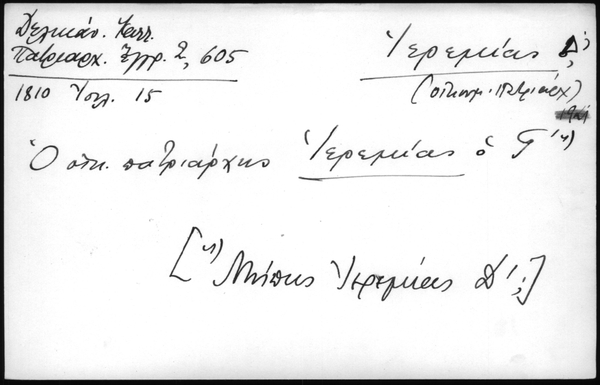 Δελικάν. Καλλ.
Πατριαρχ. Ἔγγρ. 2, 605
1810 Ἰουλ. 15
Ἱερεμίας Δ';
(οἰκουμ. πατριάρχ)
Ὁ οἰκ. πατριάρχης Ἱερεμίας ὁ Γ' 1)
[1) Μήπως Ἱερεμίας Δ';]